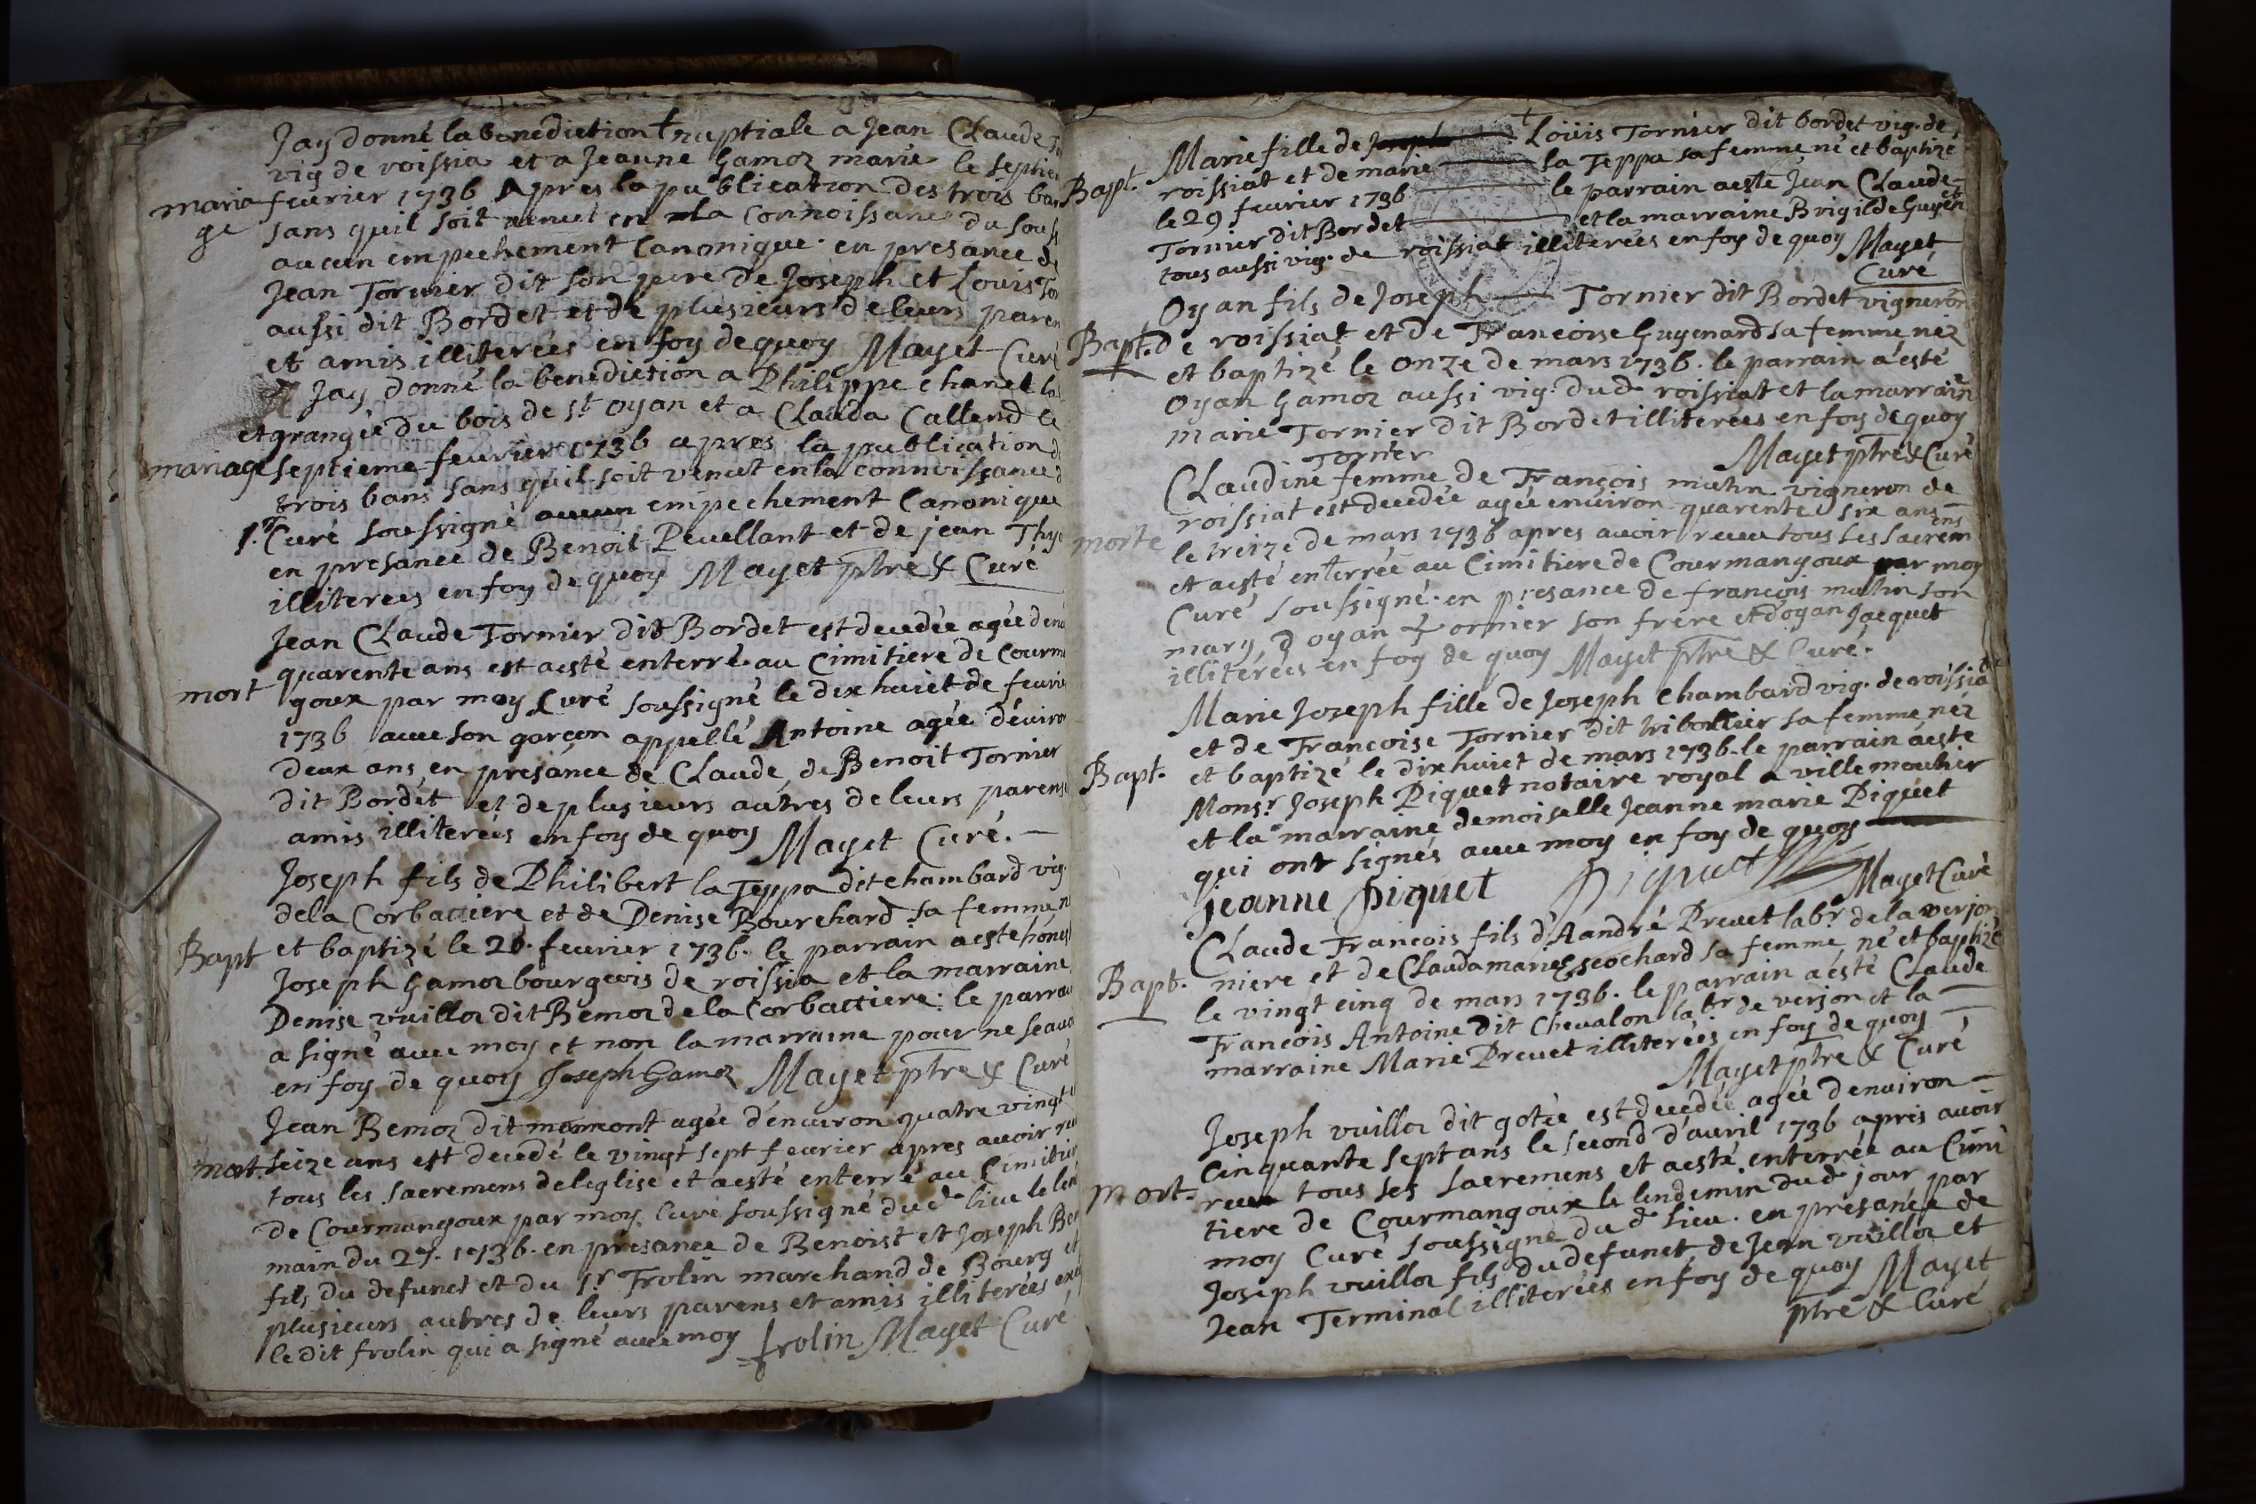 Jay donné la benediction nuptiale a Jean Claude
vig de roissia et a Jeanne Gamoz marie le septie
maria fevrier 1736 apres la publication des trois ban
ge sans quil soit venut en la connoissance du souss
aucun empechement Canonique. en presance de
Jean Tornier dit son pere de Joseph et Louis Tor
aussi dit Bordet et de plusieurs de leurs paren
et amis illiterées en foy de quoy Mayet Curé
Jay donné la benediction a Philippe Chanel la
et grangié du bois de St oyan et a Clauda Callend le
mariage septieme fevrier 1736 apres la publication d
trois bans sans quil soit venut en la connoissance d
Curé soussigné aucun empechement Canonique
en presance de Benoit Pevellant et de jean Thy
illiterees en foy de quoy Mayet ptre & Curé
Jean Claude Tornier dit Bordet est decedée agée denv
quarente ans est aesté enterré au Cimitiere de Courm
mort goux par moy Curé soussigné le dix huict de fevrie
1736 avec son garçon appellé Antoine agée d'enviro
deux ans, en presance de Claude, de Benoit Tornier
dit Bordet et de plusieurs autres de leurs parens
amis illiterées en foy de quoy Mayet Curé.
Joseph fils de Philibert la Teppa dit chambard vig.
dela Corbattiere et de Denise Bourchard sa femme n
Bapt et baptizé le 20. fevrier 1736. le parrain aesté hones
Joseph Gamoz bourgeois de roissia et la marraine
Denise vuilloz dit Bemoz de la Corbattiere: le parrai
a signé avec moy et non la marraine pour ne scavo
en foy de quoy Joseph Gamoz Mayet ptre & Curé
Jean Bemoz dit agée d'environ quatre vingt
mort. seize ans est decedé le vingt sept fevrier apres avoir re
tous les sacremens deleglise et aesté enterré au Cimitie
de Courmangoux par moy Curé soussigné dud lieu le len
main du 27. 1736. en presance de Benoist et Joseph Be
fils du defunct et du Sr Frolin marchand de Bourg et
plusieurs autres de leurs parens et amis illiterées ex
le dit frolin qui a signé avec moy frolin Mayet Curé
Marie fille de Joseph Loüis Tornier dit bordet vig. de
Bapt. roissiat et de marie la Teppa sa femme né et baptizé
le 29 fevrier 1736 le parrain aesté Jean Claude
Tornier dit Bordet et la marraine Brigilde Guyen
tous aussi vig. de roissiat illiterées en foy de quoy Mayet
Curé
Oyan fils de Joseph Tornier dit Bordet vigneron
Bapt. de roissiat et de Francoise Guyenard sa femme néz
et baptizé le onze de mars 1736. le parrain a esté
Oyan Gamoz aussi vig. dud roissiat et la marrain
marie Tornier dit Bordet illiterées en foy de quoy
Mayet ptre & Curé
Tornier
Claudine femme de François mutin vigneron de
roissiat est decedée agée environ quarente six ans
morte le treize de mars 1736 apres avoir receu tous ses sacrem ens
et aesté enterrée au Cimitiere de Courmangoux par moy
Curé soussigné. en presance de francois mutin son
mary, d oyan Tornier son frere et doyan Jacquet
illiterées en foy de quoy Mayet ptre & Curé.
Marie Joseph fille de Joseph Chambard vig. de roissiat
et de Francoise Tornier dit tribollier sa femme néz
Bapt. et baptizé le dix huict de mars 1736. le parrain aesté
Monsr. Joseph Piquet notaire royal a ville moutier
et la marraine demoiselle Jeanne marie Piquet
qui ont signés avec moy en foy de quoy
jeanne piquet Piquet Mayet Curé
Claude Francois fils d'Aandré Prevet labr. de la verjon
Bapt. niere et de Clauda marie Escochard sa femme, né et baptizé
le vingt cinq de mars 1736. le parrain a esté Claude
François Antoine dit Chevalon labr de verjon et la
marraine Marie Prevet illiterées en foy de quoy
Mayet ptre & Curé
Joseph vuilloz dit gotée est decedée agée denviron
cinquante sept ans le second d'avril 1736 apres avoir
mort. receu tous ses sacremens et aesté enterrée au Cimi
tiere de Courmangoux le lendemin dud jour par
moy Curé soussigné dud lieu. en presance de
Joseph vuilloz fils du defunct, de Jean vuilloz et
Jean Terminal illiterées en foy de quoy Mayet
ptre & Curé